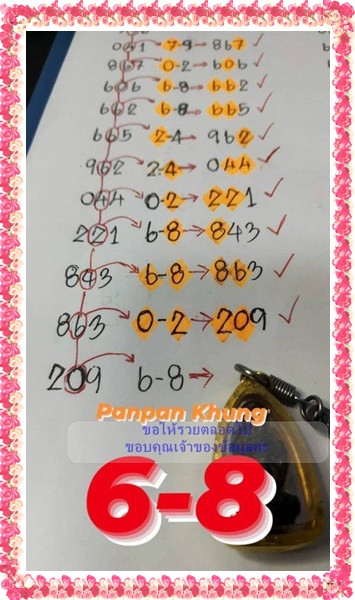 001 7-9→ 867 ✓
867 0-2→ 606 ✓
606 6-8→ 662 ✓
662 6-8→ 665 ✓
665 2-4→ 962 ✓
962 2-4→ 044 ✓
044 0-2→ 221 ✓
221 6-8→ 843 ✓
843 6-8→ 863 ✓
863 0-2→ 209 ✓
209 6-8→
Panpan Khung
ขอให้รวยตลอดไป
ขอบคุณเจ้าของข้อมูลคะ
6-8